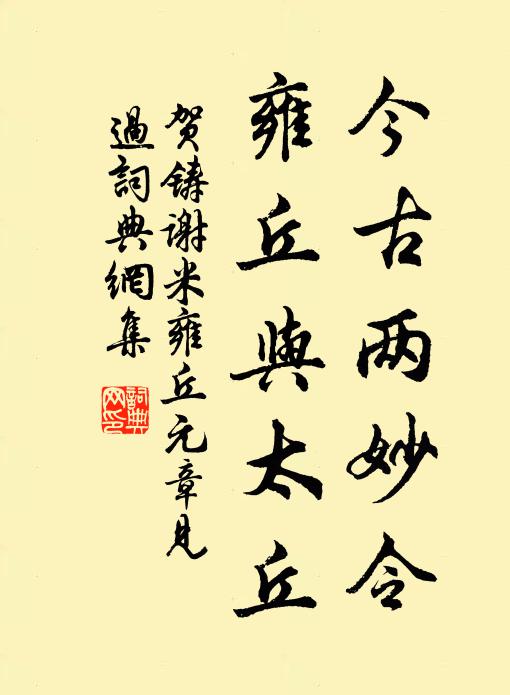 今古两妙令
雍丘與太丘
贺铸谢米雍丘元章见
過詞典網集
詞典
网印